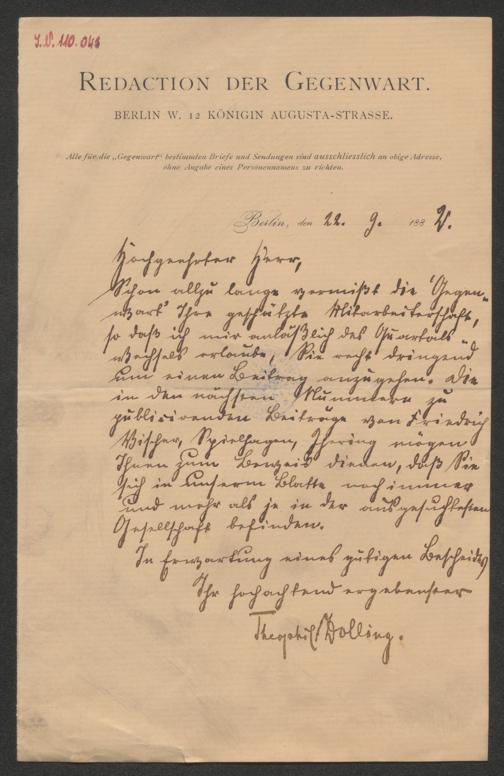 I.N. 110.048
REDACTION DER GEGENWART.
BERLIN W. 12 KÖNIGIN AUGUSTA-STRASSE.
Alle für die „Gegenwart“ bestimmten Briefe und Sendungen sind ausschliesslich an obige Adresse,
ohne Angabe eines Personennamens zu richten.
Berlin, den 22. 9. 1882.
Hochgeehrter Herr,
Schon allzu lange vermißt die „Gegen-
wart“ Ihre geschätzte Mitarbeiterschaft,
so daß ich mir anläßlich des Quartals-
wechsels erlaube, Sie recht dringend
um einen Beitrag anzugehen. Die
in den nächsten Nummern zu
publicirenden Beiträge von Friedrich
Vischer, Spielhagen, Ihering mögen
Ihnen zum Beweis dienen, daß Sie
sich in unserm Blatte noch immer
und mehr als je in der ausgesuchtesten
Gesellschaft befinden.
In Erwartung eines gütigen Bescheides
Ihr hochachtend ergebenster
Theophil Zolling.